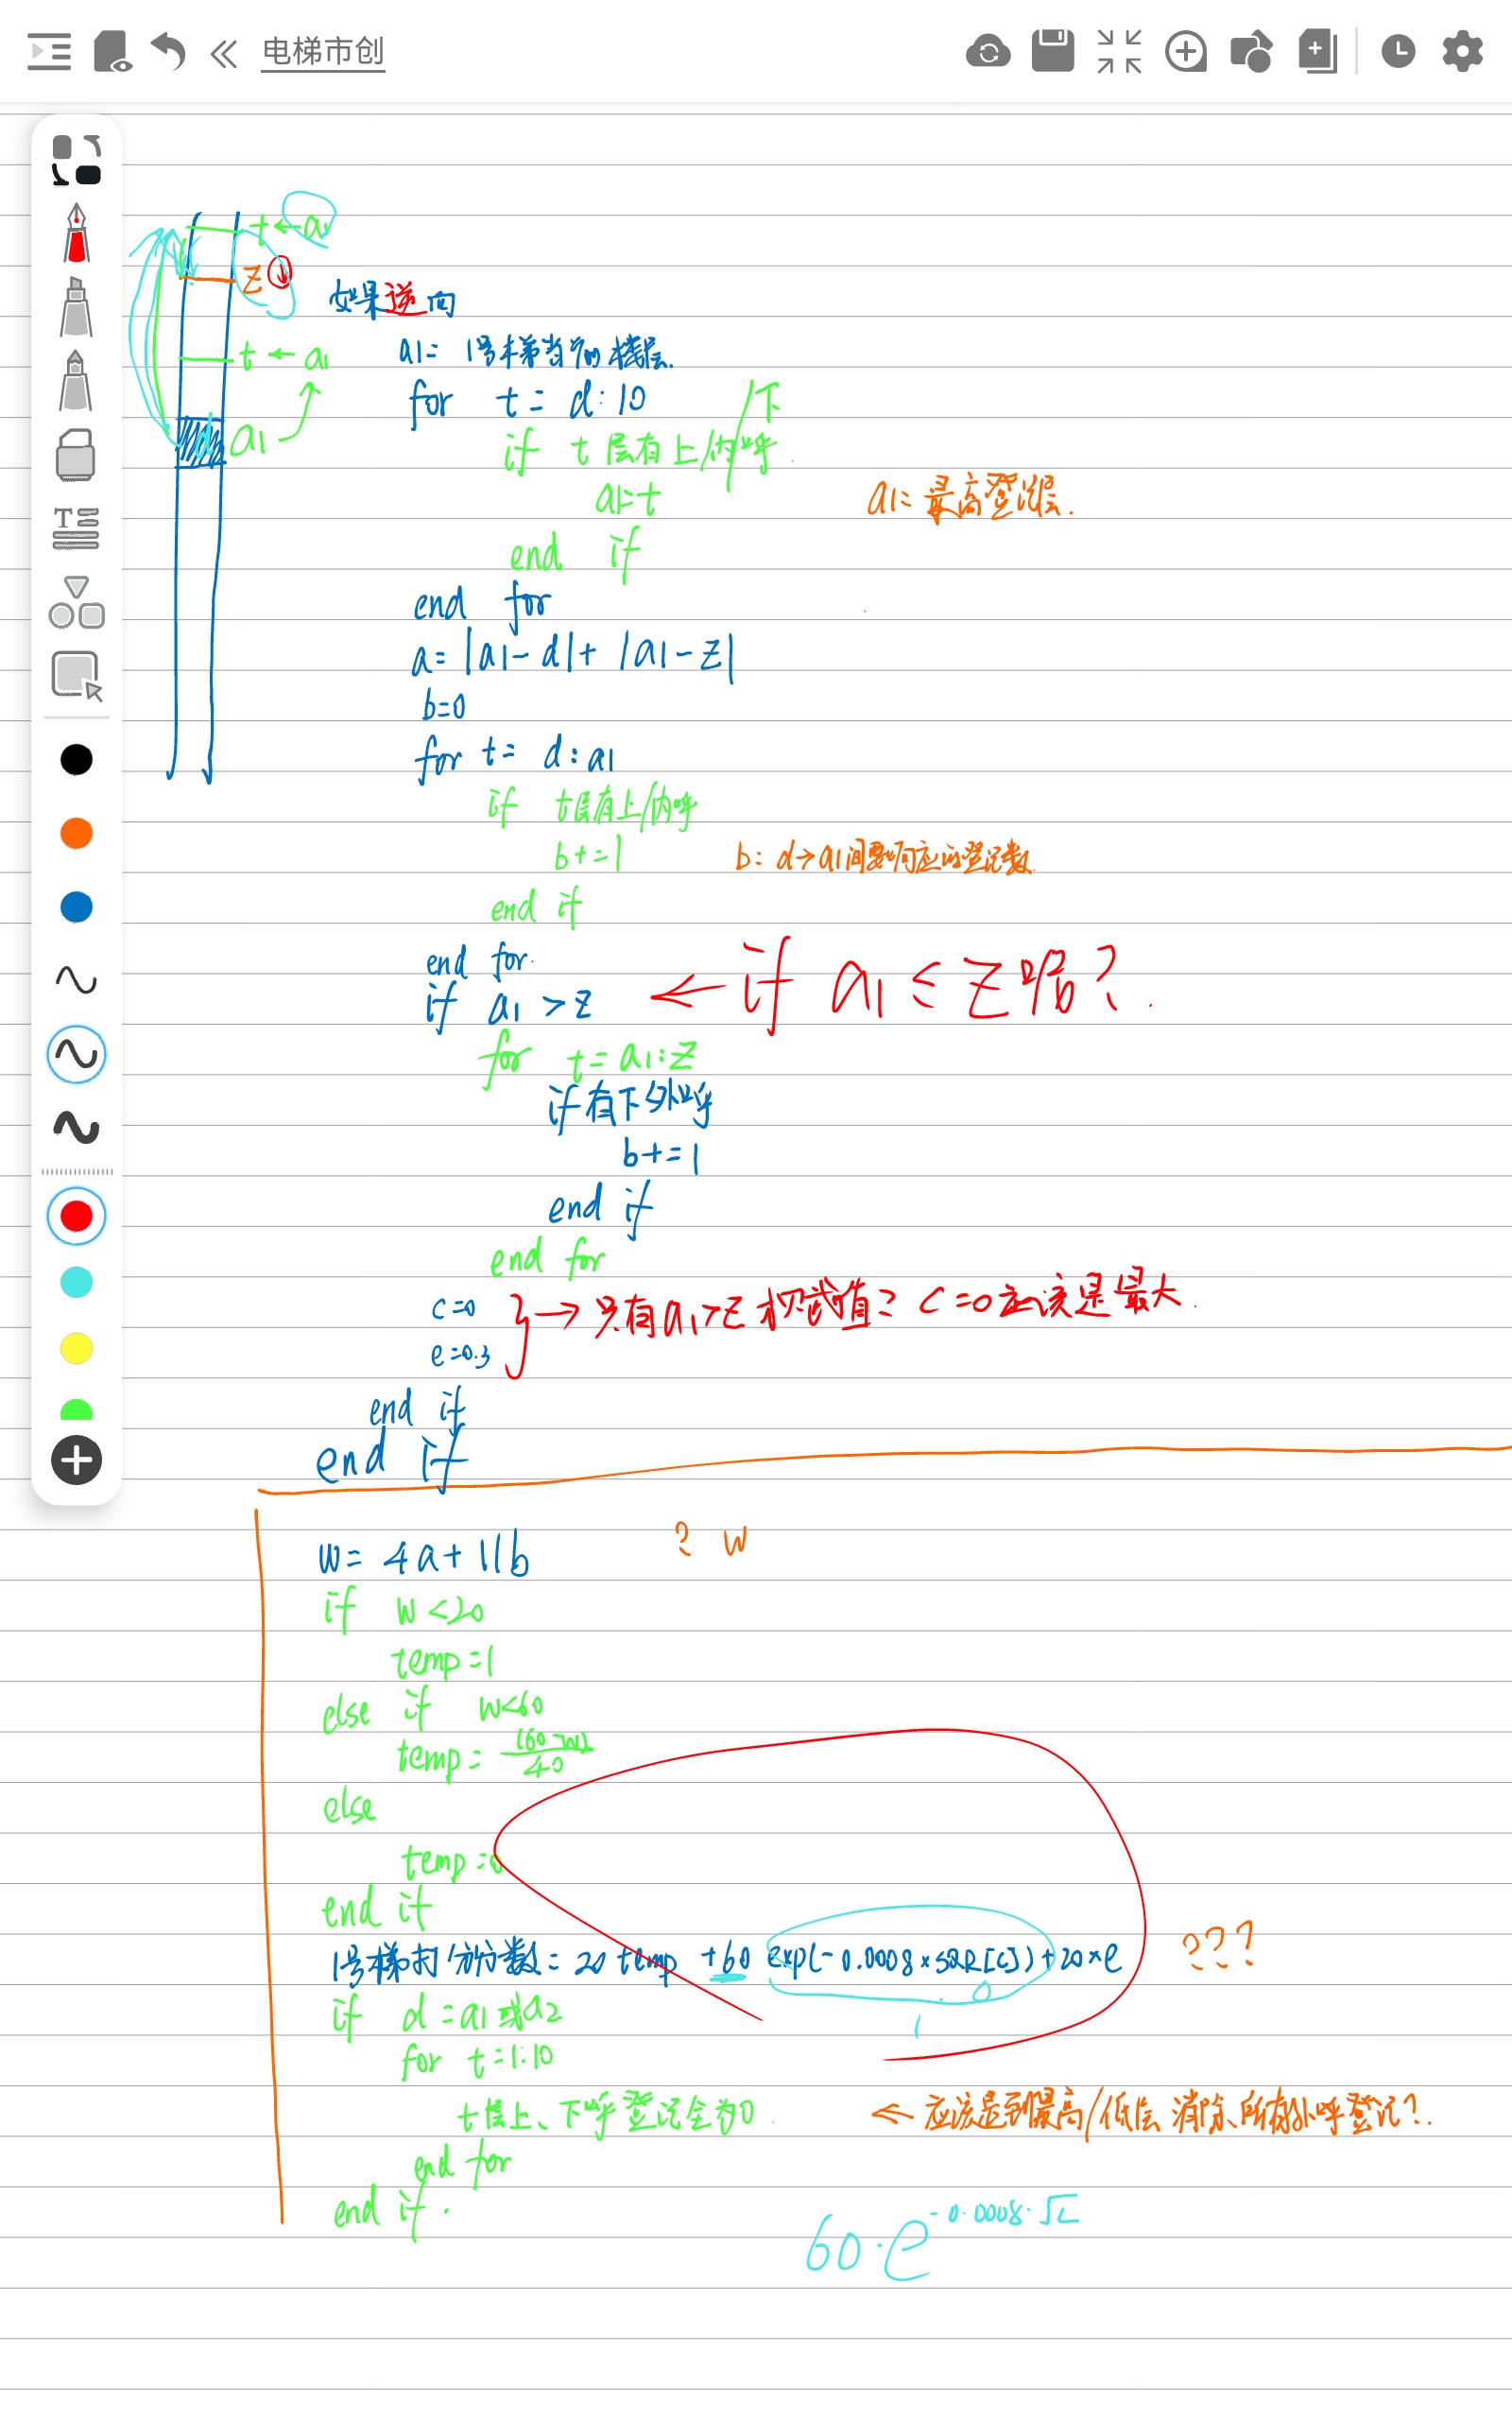 电梯市创
t←a1
z↓
如果逆向
a1= 1号梯当前楼层.
t←a1
for t= d:10
if t层有上/内呼/下
d a1
a1=t
a1= 最高登记层.
end if
end for
a= |a1-d|+ |a1-z|
b=0
for t= d:a1
if t层有上/内呼
b+=1
b: d→a1间要响应的登记数
end if
end for
if a1>z ← if a1≤z呢?
for t=a1:z
if有下外呼
b+=1
end if
end for
c=0
e=0.3
}→只有a1>z才赋值? c=0应该是最大.
end if
end if
w= 4a+11b
? w
if w<20
temp=1
else if w<60
temp= (60-w)/40
else
temp=0
end if
1号梯打分分数= 20 temp +60 exp(-0.0008×SQR[c])+20×e ???
0
1
if d=a1或a2
for t=1:10
t层上、下呼登记全为0. ← 应该是到最高/低层 消除所有外呼登记?.
end for
end if.
60·e^-0.0008·√c
T